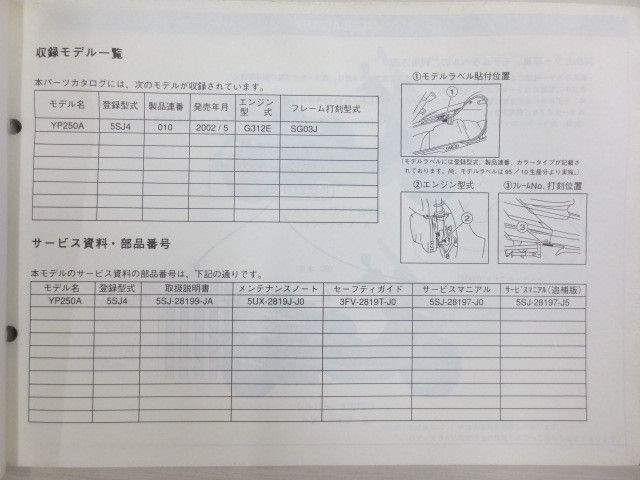 収録モデル一覧
本パーツカタログには、次のモデルが収録されています。
モデル名 登録型式 製品連番 発売年月 エンジン型式 フレーム打刻型式
YP250A 5SJ4 010 2002/5 G312E SG03J
①モデルラベル貼付位置
①
(モデルラベルには登録型式、製品連番、カラータイプが記載さ
れております。尚、モデルラベルは95/10生産分より実施。)
②エンジン型式 ③フレームNo. 打刻位置
② ③
サービス資料・部品番号
本モデルのサービス資料の部品番号は、下記の通りです。
モデル名 登録型式 取扱説明書 メンテナンスノート セーフティガイド サービスマニアル サービスマニアル(追補版)
YP250A 5SJ4 5SJ-28199-JA 5UX-2819J-J0 3FV-2819T-J0 5SJ-28197-J0 5SJ-28197-J5